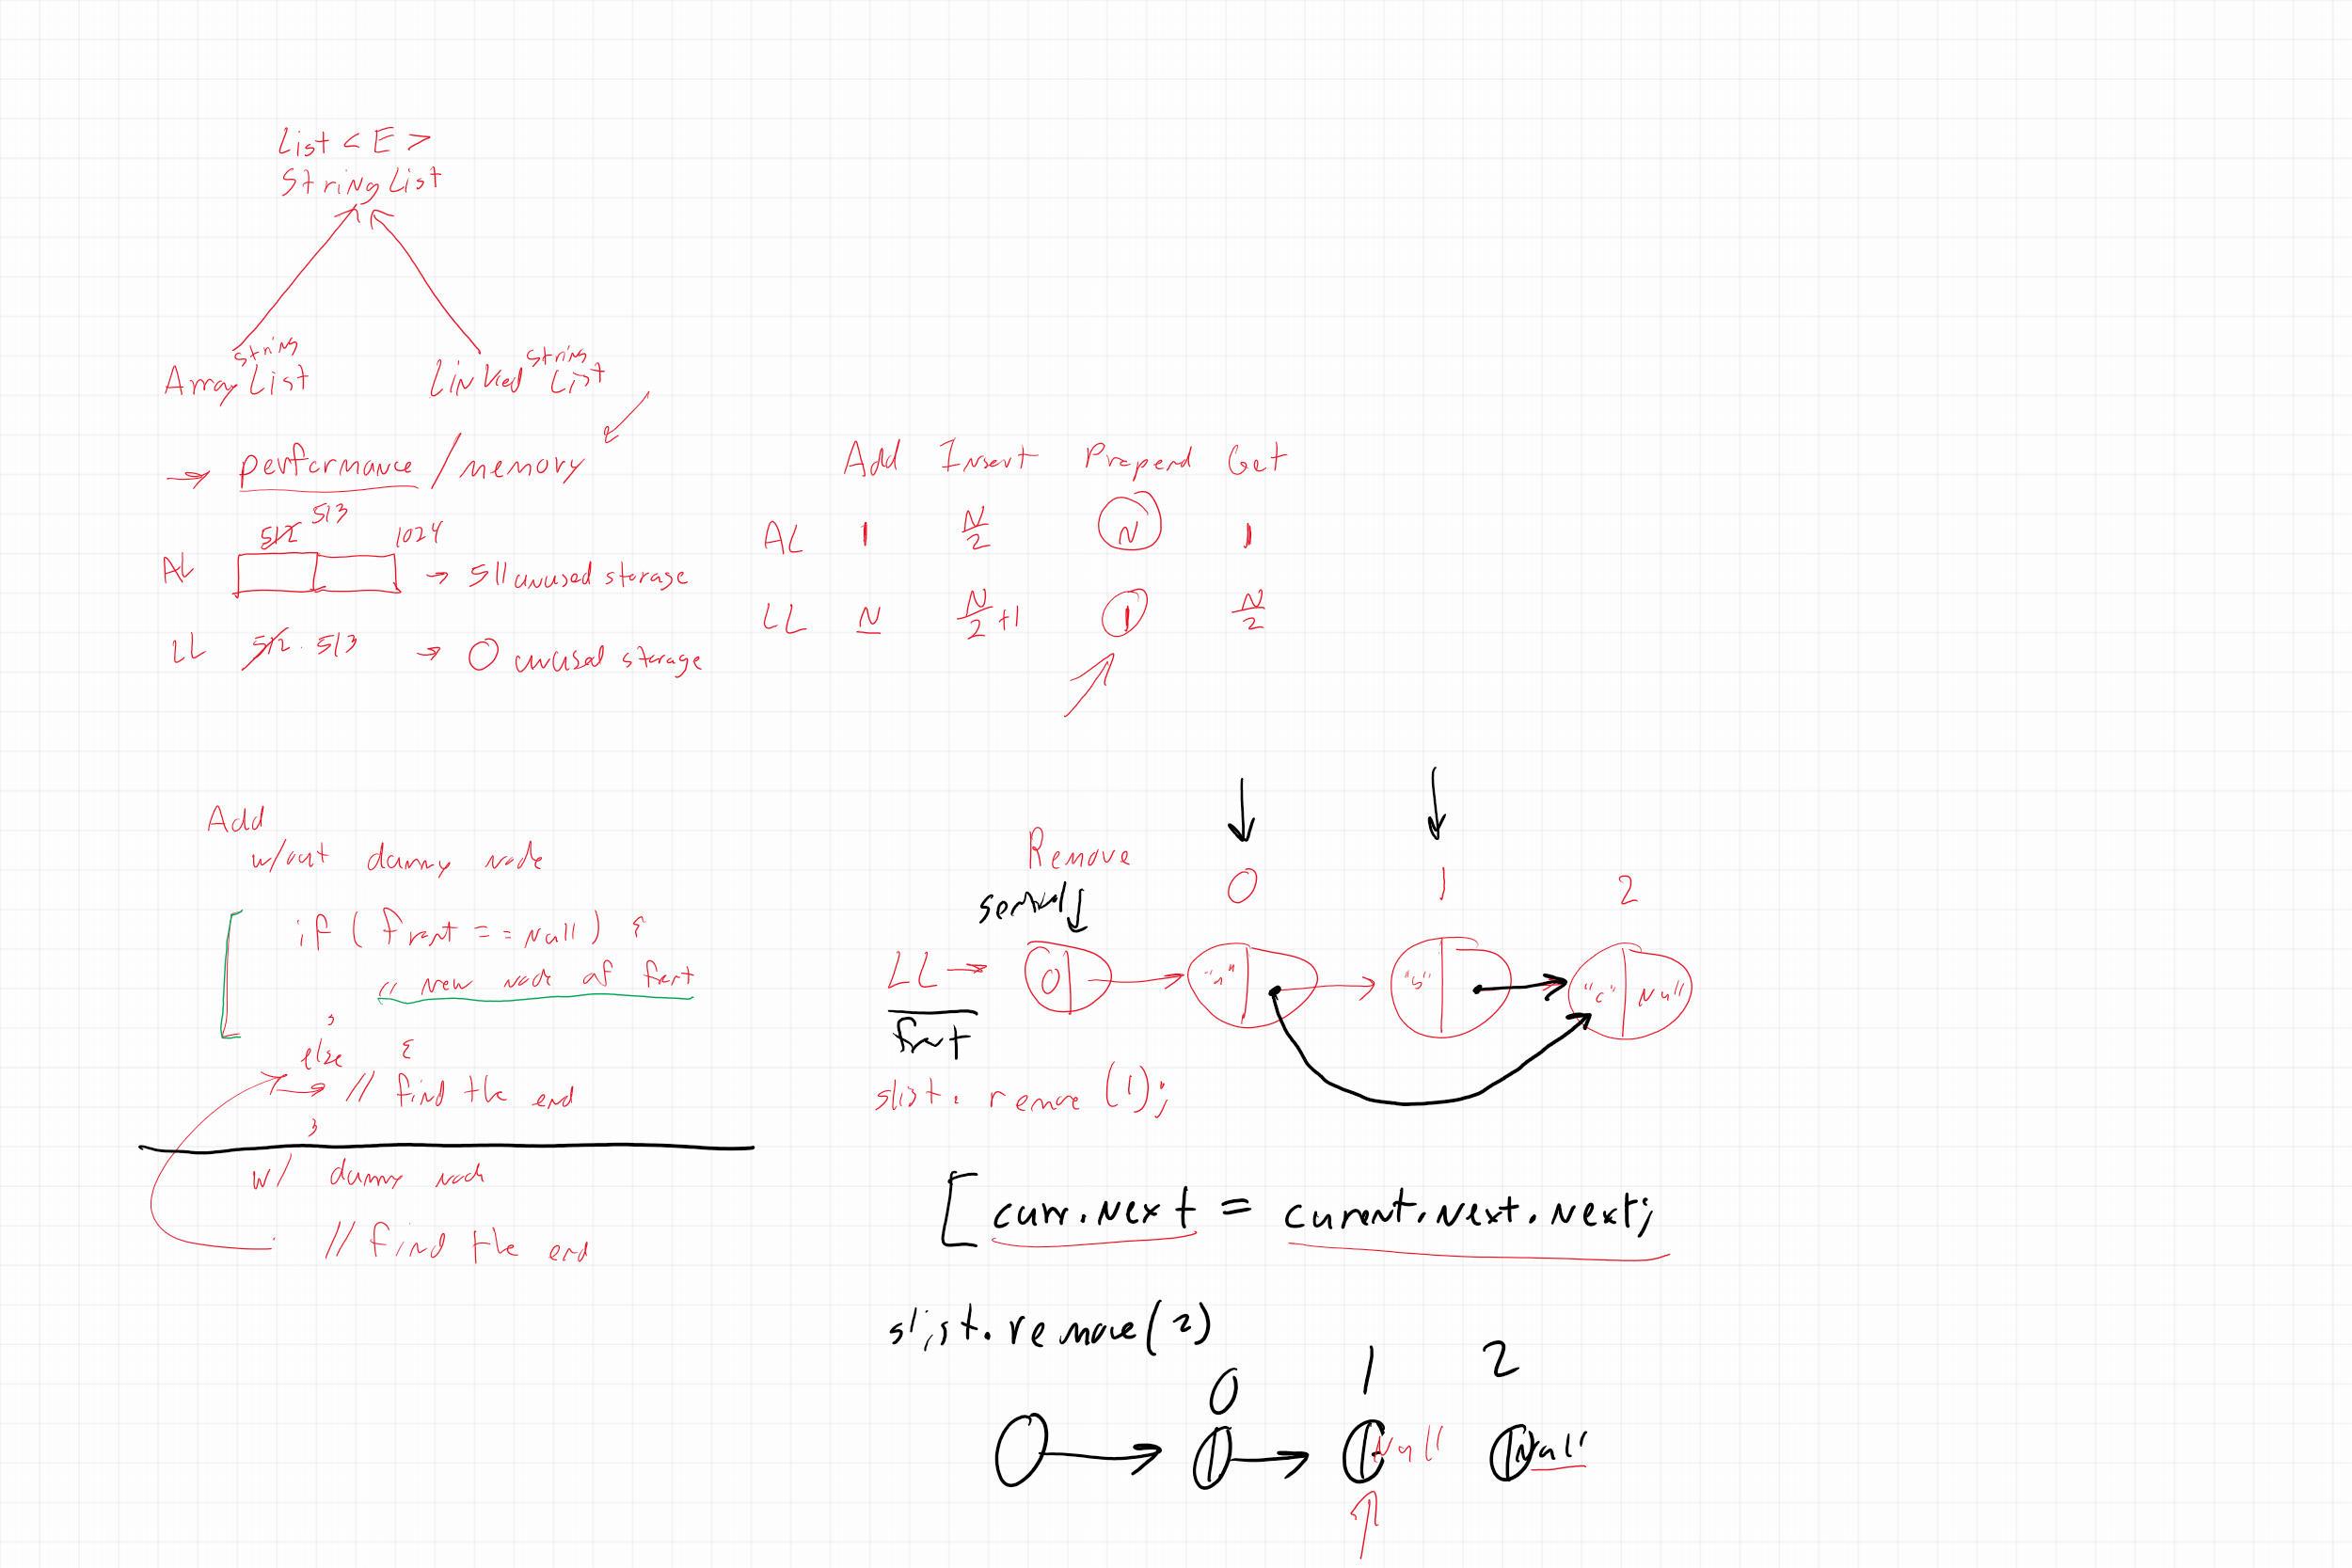 List < E >
StringList
Array String List
Linked String List
→ performance / memory
512 513 1024
AL → 511 unused storage
LL 512 513 → 0 unused storage
Add Insert Prepend Get
AL 1 N/2 N 1
LL N N/2 +1 1 N/2
Add
w/out dummy node
if ( front == null ) {
// new node at front
}
else {
→ // find the end
}
w/ dummy node
// find the end
Remove
0 1 2
LL → 0 "a" "b" "c" Null
front
slist. remove (1);
[ curr.next = current.next.next;
slist.remove(2)
0 1 2
Null Null